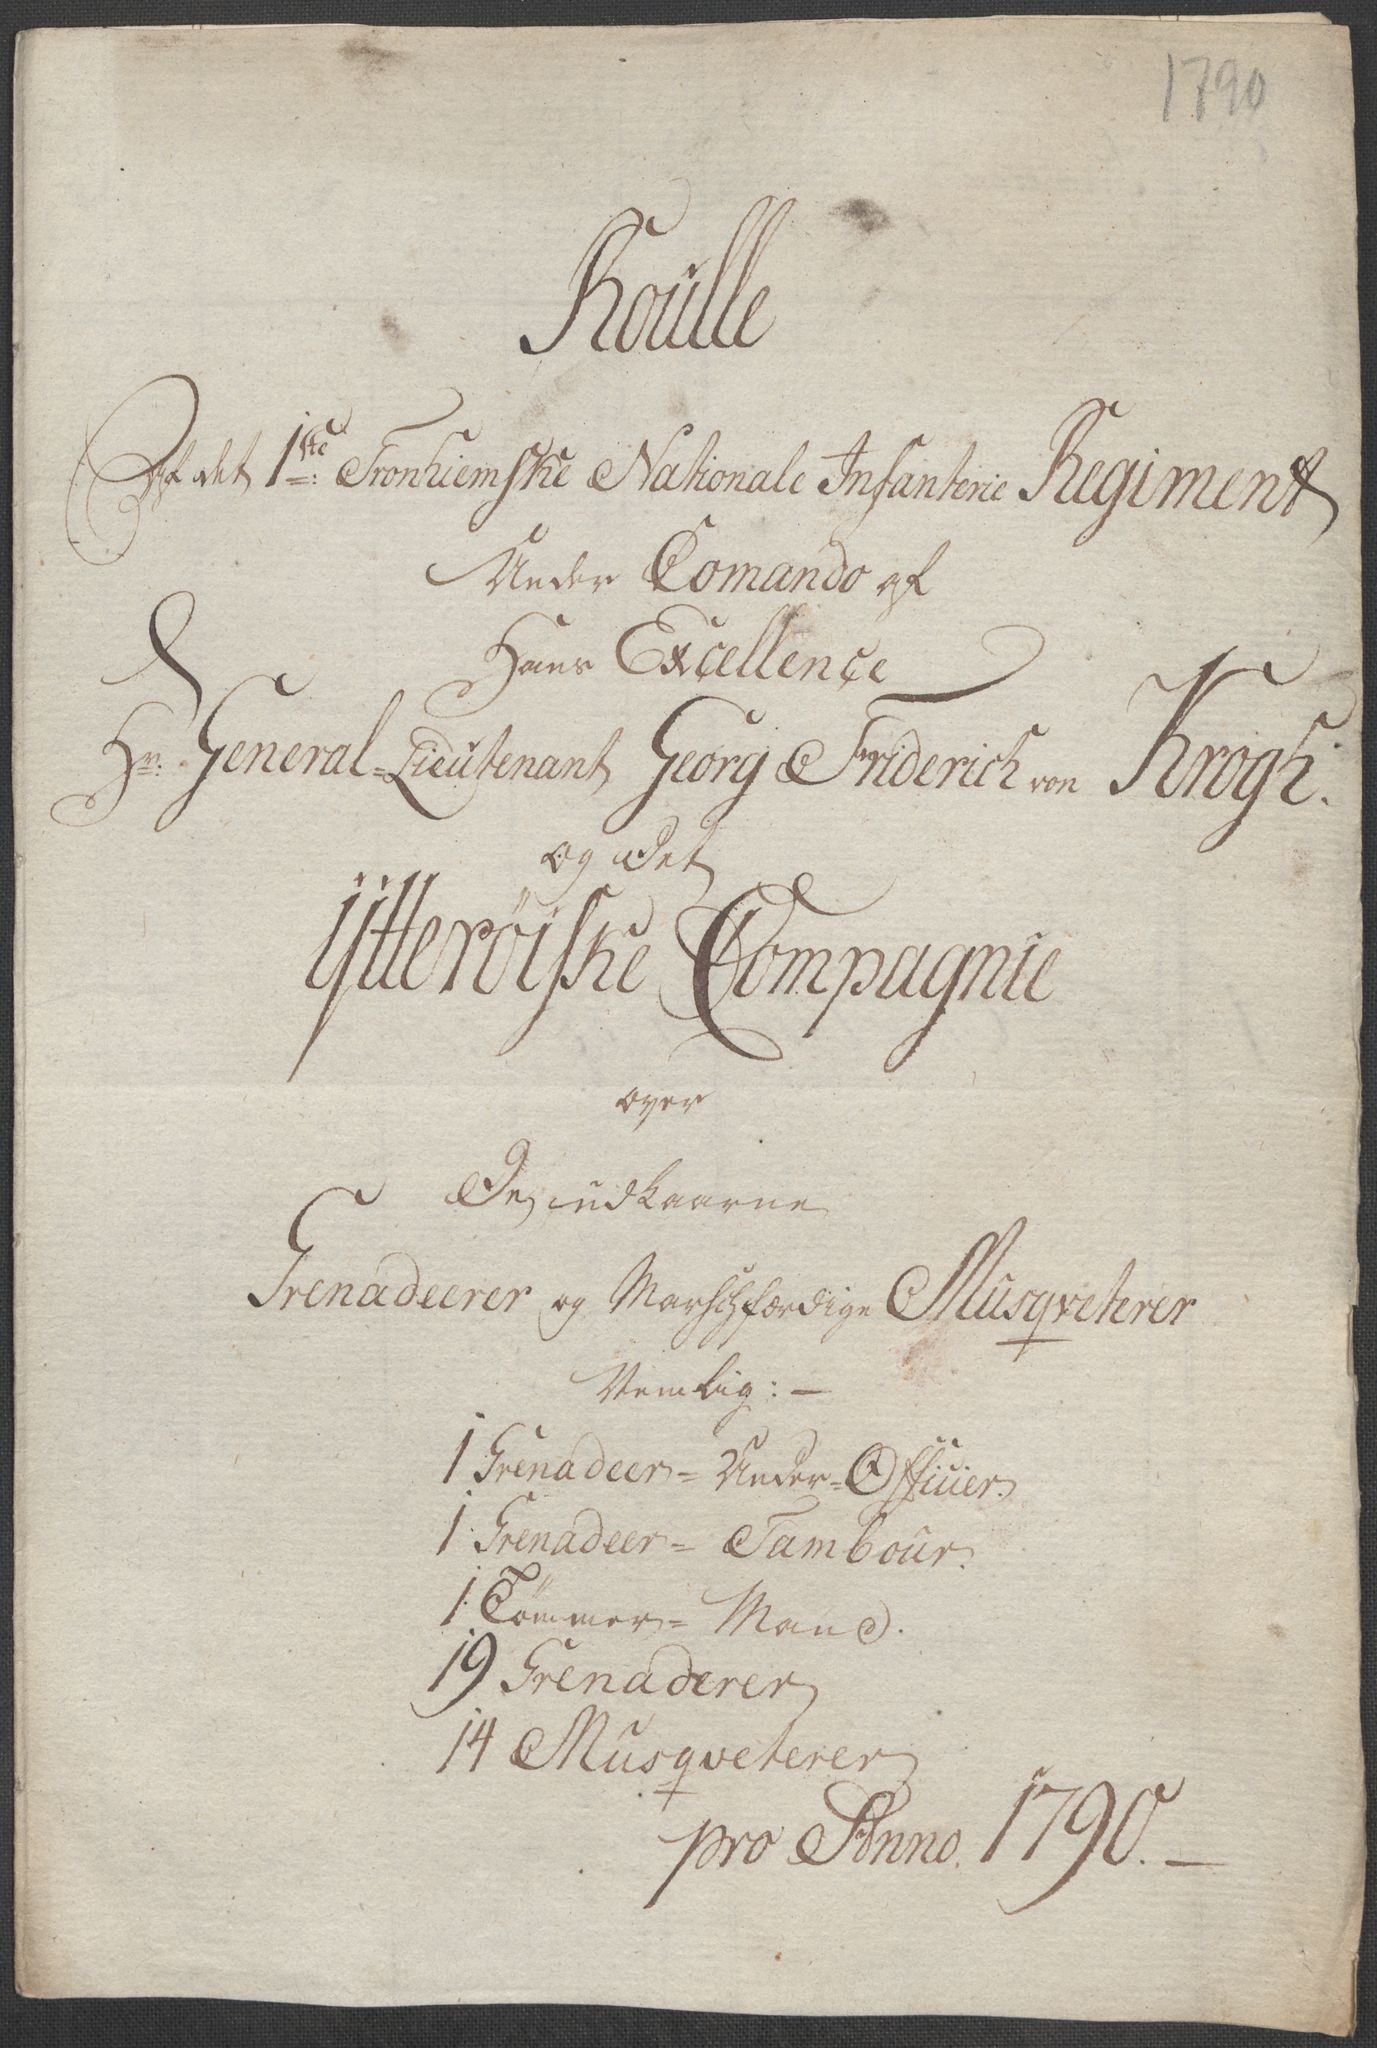 1790
Roulle
Af det 1ste: Tronhiemske Nationale Infanterie Regiment
Under Comando af
Hans Excellence
Hr: General=Lieutenant Georg Friderich von Krogh.
og det
Ytterøiske Compagnie
over
De udkaarne
Grenadeerer og Marschfærdige Musqveterer
Nemlig: —
1 Grenadeer= Under=Officier.
1 Grenadeer= Tambour.
1 Tømmer= Mand.
19 Grenaderer
14 Musqveterer
pro Anno. 1790. —